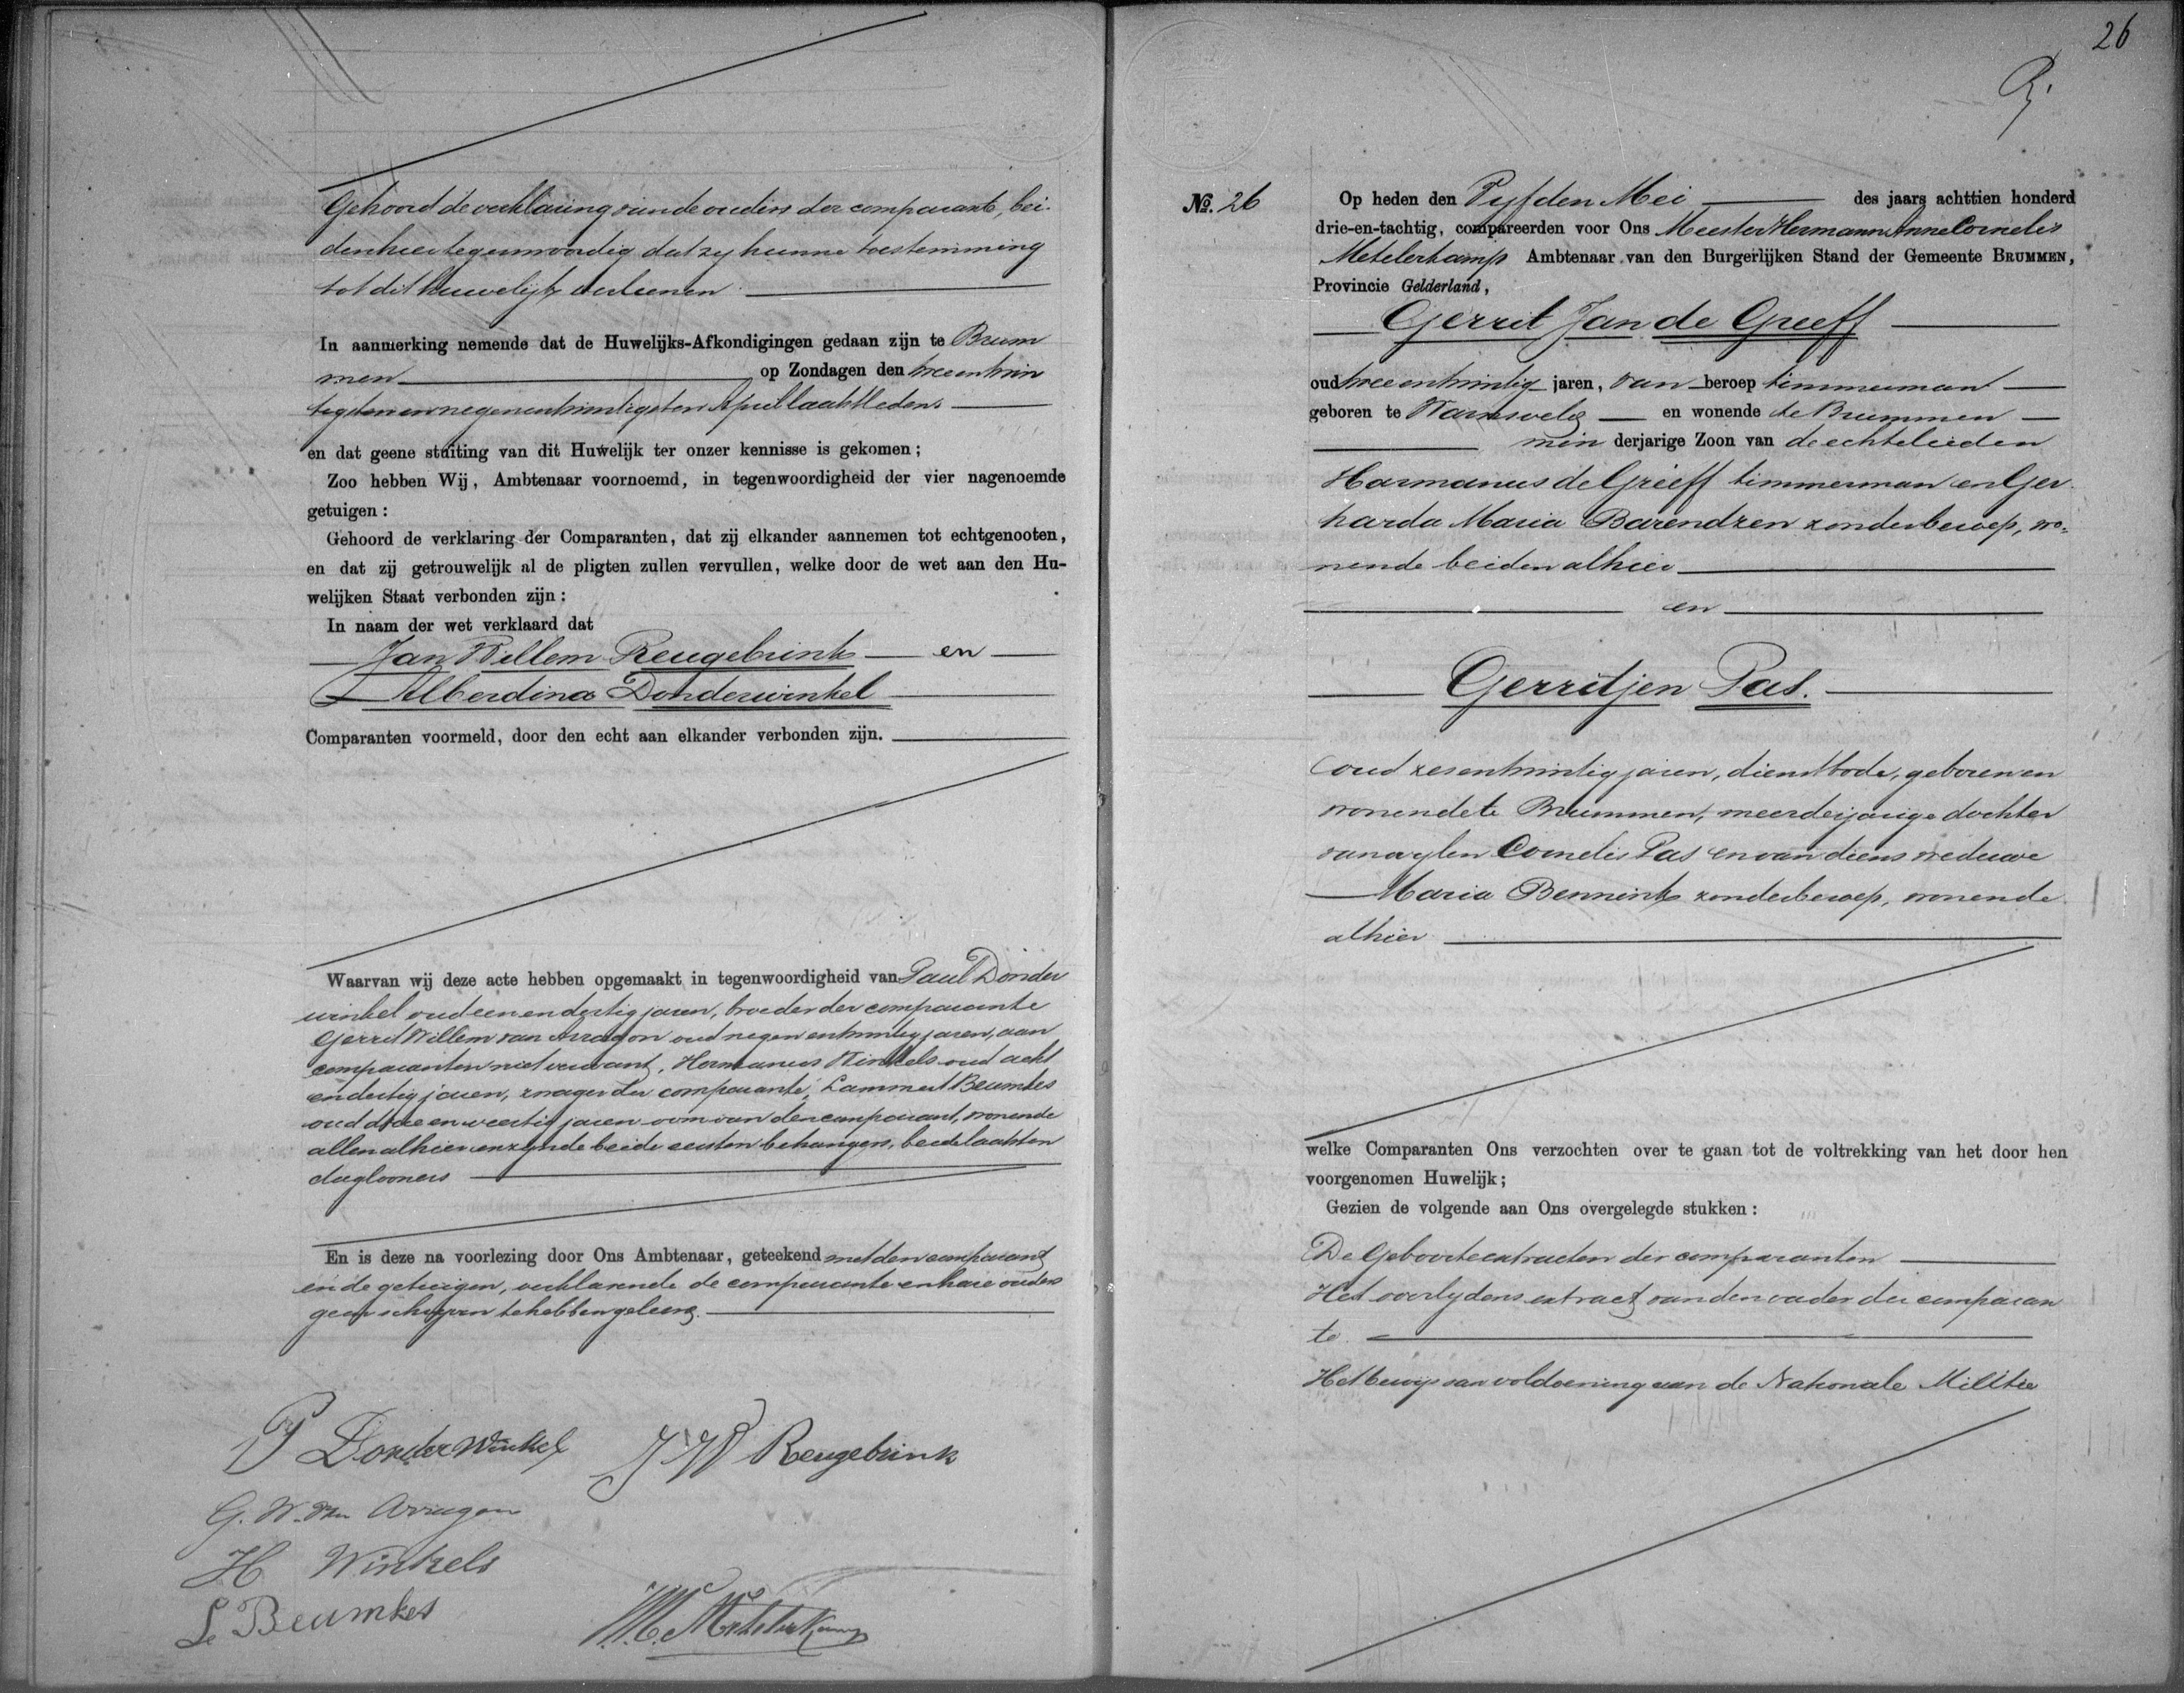 Gehoord de verklaring van de ouders der comparante, bei-
den hier tegenwoordig dat zy hunne toestemming
tot dit huwelijk verleenen
In aanmerking nemende dat de Huwelijks-Afkondigingen gedaan zijn te Brum
men op Zondagen den tweeentwin
tigsten en negenentwintigsten April laatstleden
en dat geene stuiting van dit Huwelijk ter onzer kennisse is gekomen;
Zoo hebben Wij, Ambtenaar voornoemd, in tegenwoordigheid der vier nagenoemde
getuigen:
Gehoord de verklaring der Comparanten, dat zij elkander aannemen tot echtgenooten,
en dat zij getrouwelijk al de pligten zullen vervullen, welke door de wet aan den Hu-
welijken Staat verbonden zijn:
In naam der wet verklaard dat
Jan Willem Reugebrink en
Alberdina Donderwinkel
Comparanten voormeld, door den echt aan elkander verbonden zijn.
Waarvan wij deze acte hebben opgemaakt in tegenwoordigheid van Paul Donder
winkel oud eenendertig jaren, broeder der comparante
Gerrit Willem van Arragon oud negenentwintig jaren, aan
comparanten niet verwant, Hermanus Winkels oud acht
endertig jaren, zwager der comparante, Lammert Beumkes
oud drieenveertig jaren oom van den comparant, wonende
allen alhier en zynde beide eersten behangers, beide laatsten
daglooners
En is deze na voorlezing door Ons Ambtenaar, geteekend met den comparant
en de getuigen, verklarende de comparante en hare ouders
geen schryven te hebben geleerd.
P Donderwinkel
J W Reugebrink
G. W. van Arragon
H Winkels
L Beumkes
Metelerkamp
26
No. 26
Op heden den Vyfden Mei des jaars achttien honderd
drie-en-tachtig, compareerden voor Ons Meester Hermann Anne Cornelis
Metelerkamp Ambtenaar van den Burgerlijken Stand der Gemeente BRUMMEN,
Provincie Gelderland,
Gerrit Jan de Greeff
oud tweeentwintig jaren, van beroep timmerman
geboren te Warnsveld en wonende te Brummen
min derjarige Zoon van de echtelieden
Harmanus de Greeff timmerman en Ger
harda Maria Barendzen zonder beroep, wo-
nende beiden alhier
en
Gerritjen Pas.
oud zesentwintig jaren, dienstbode, geboren en
wonende te Brummen, meerderjarige dochter
van wylen Cornelis Pas en van diens weduwe
Maria Bennink zonder beroep, wonende
alhier
welke Comparanten Ons verzochten over te gaan tot de voltrekking van het door hen
voorgenomen Huwelijk;
Gezien de volgende aan Ons overgelegde stukken:
De Geboorteextracten der comparanten
Het overlydens extract van den vader der comparan
te
Het bewys van voldoening aan de Nationale Militie